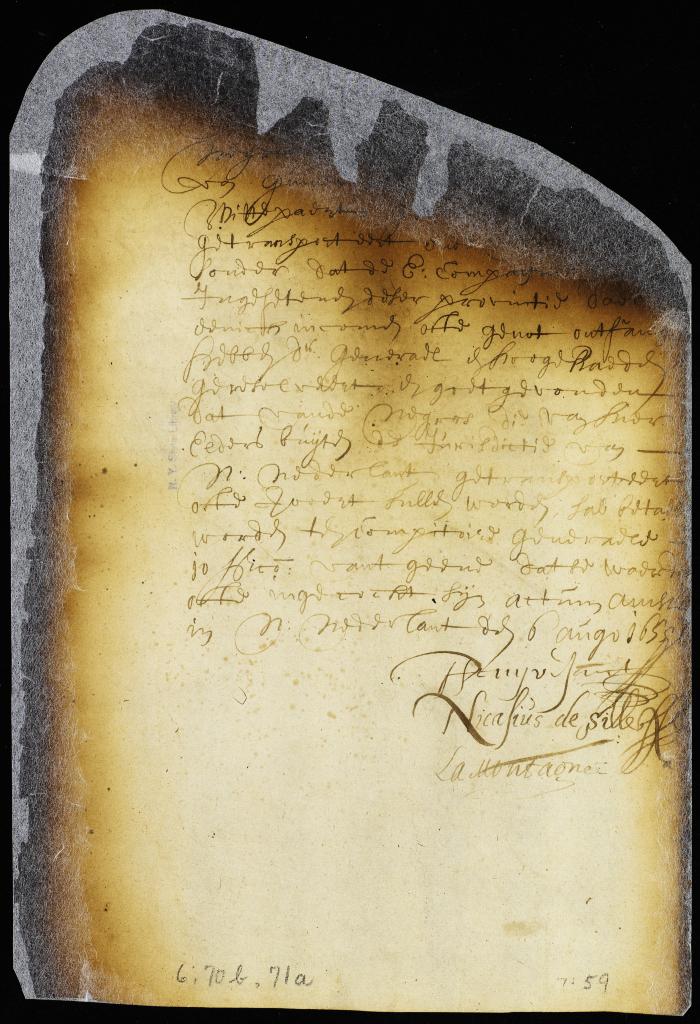 Negro
van Guin
Wittepaert
getransporteert
sonder dat de E: Compag
Ingesetenen deser provintie daer
eenich incomen ofte genot ontfan
hebben dr. Generael en hooge Raeden
geresolveert en goet gevonden
dat vande Negros die van hier
elders buijten de Jurisdictie van
N: Nederlant getransporteert
ofte gevoert sullen worden, sal beta
worden ten Comptoire Generaele
10 p Cto: vant geene dat se waerd
ofte ingecocht sijn actum Amst
in N: Nederlant den 6 augo 1655
P Stuyvesant
Nicasius de Sille
La Montagne
N.Y. State Library
6:70b, 71a
7:59